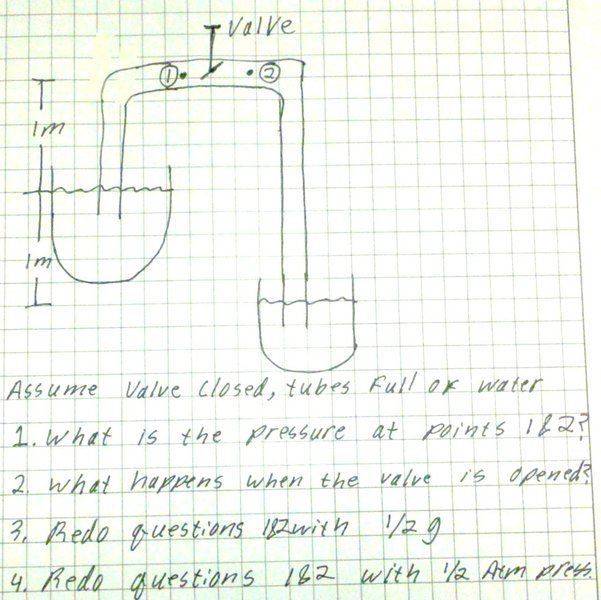 Valve
① ②
1m
1m
Assume Valve Closed, tubes Full of water
1. What is the pressure at points 1&2?
2. What happens when the valve is opened?
3. Redo questions 1&2 with 1/2 g
4. Redo questions 1&2 with 1/2 Atm press.